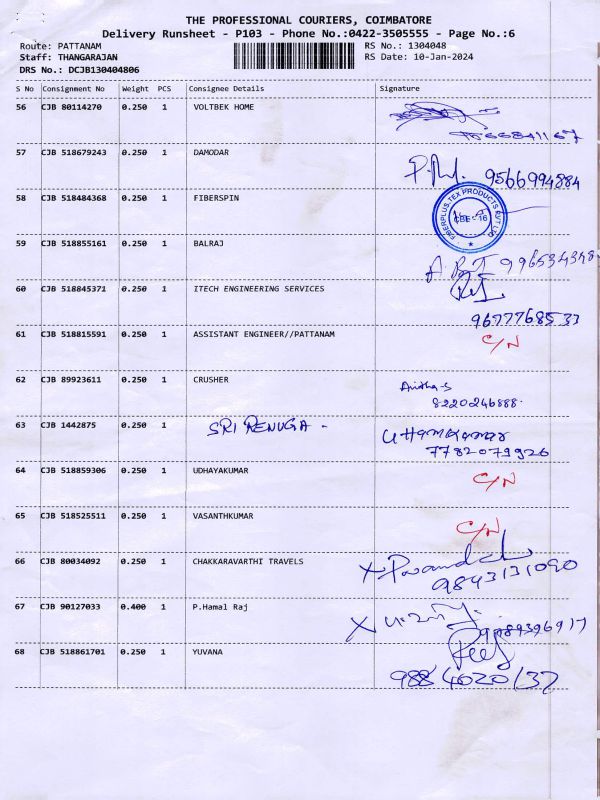 THE PROFESSIONAL COURIERS, COIMBATORE
Delivery Runsheet - P103 - Phone No.:0422-3505555 - Page No.:6
Route: PATTANAM RS No.: 1304048
Staff: THANGARAJAN RS Date: 10-Jan-2024
DRS No.: DCJB130404806
S No Consignment No Weight PCS Consignee Details Signature
56 CJB 80114270 0.250 1 VOLTBEK HOME
57 CJB 518679243 0.250 1 DAMODAR
9566994884
58 CJB 518484368 0.250 1 FIBERSPIN
FIBERPLUS TEX PRODUCTS PVT LTD
CBE - 16
59 CJB 518855161 0.250 1 BALRAJ
60 CJB 518845371 0.250 1 ITECH ENGINEERING SERVICES
9677768533
61 CJB 518815591 0.250 1 ASSISTANT ENGINEER//PATTANAM
C/N
62 CJB 89923611 0.250 1 CRUSHER
Anitha-S
8220246888.
63 CJB 1442875 0.250 1 SRI RENUGA - uthamkumar
7782079926
64 CJB 518859306 0.250 1 UDHAYAKUMAR
C/N
65 CJB 518525511 0.250 1 VASANTHKUMAR
C/N
66 CJB 80034092 0.250 1 CHAKKARAVARTHI TRAVELS
9843131090
67 CJB 90127033 0.400 1 P.Hamal Raj
68 CJB 518861701 0.250 1 YUVANA
9884020137